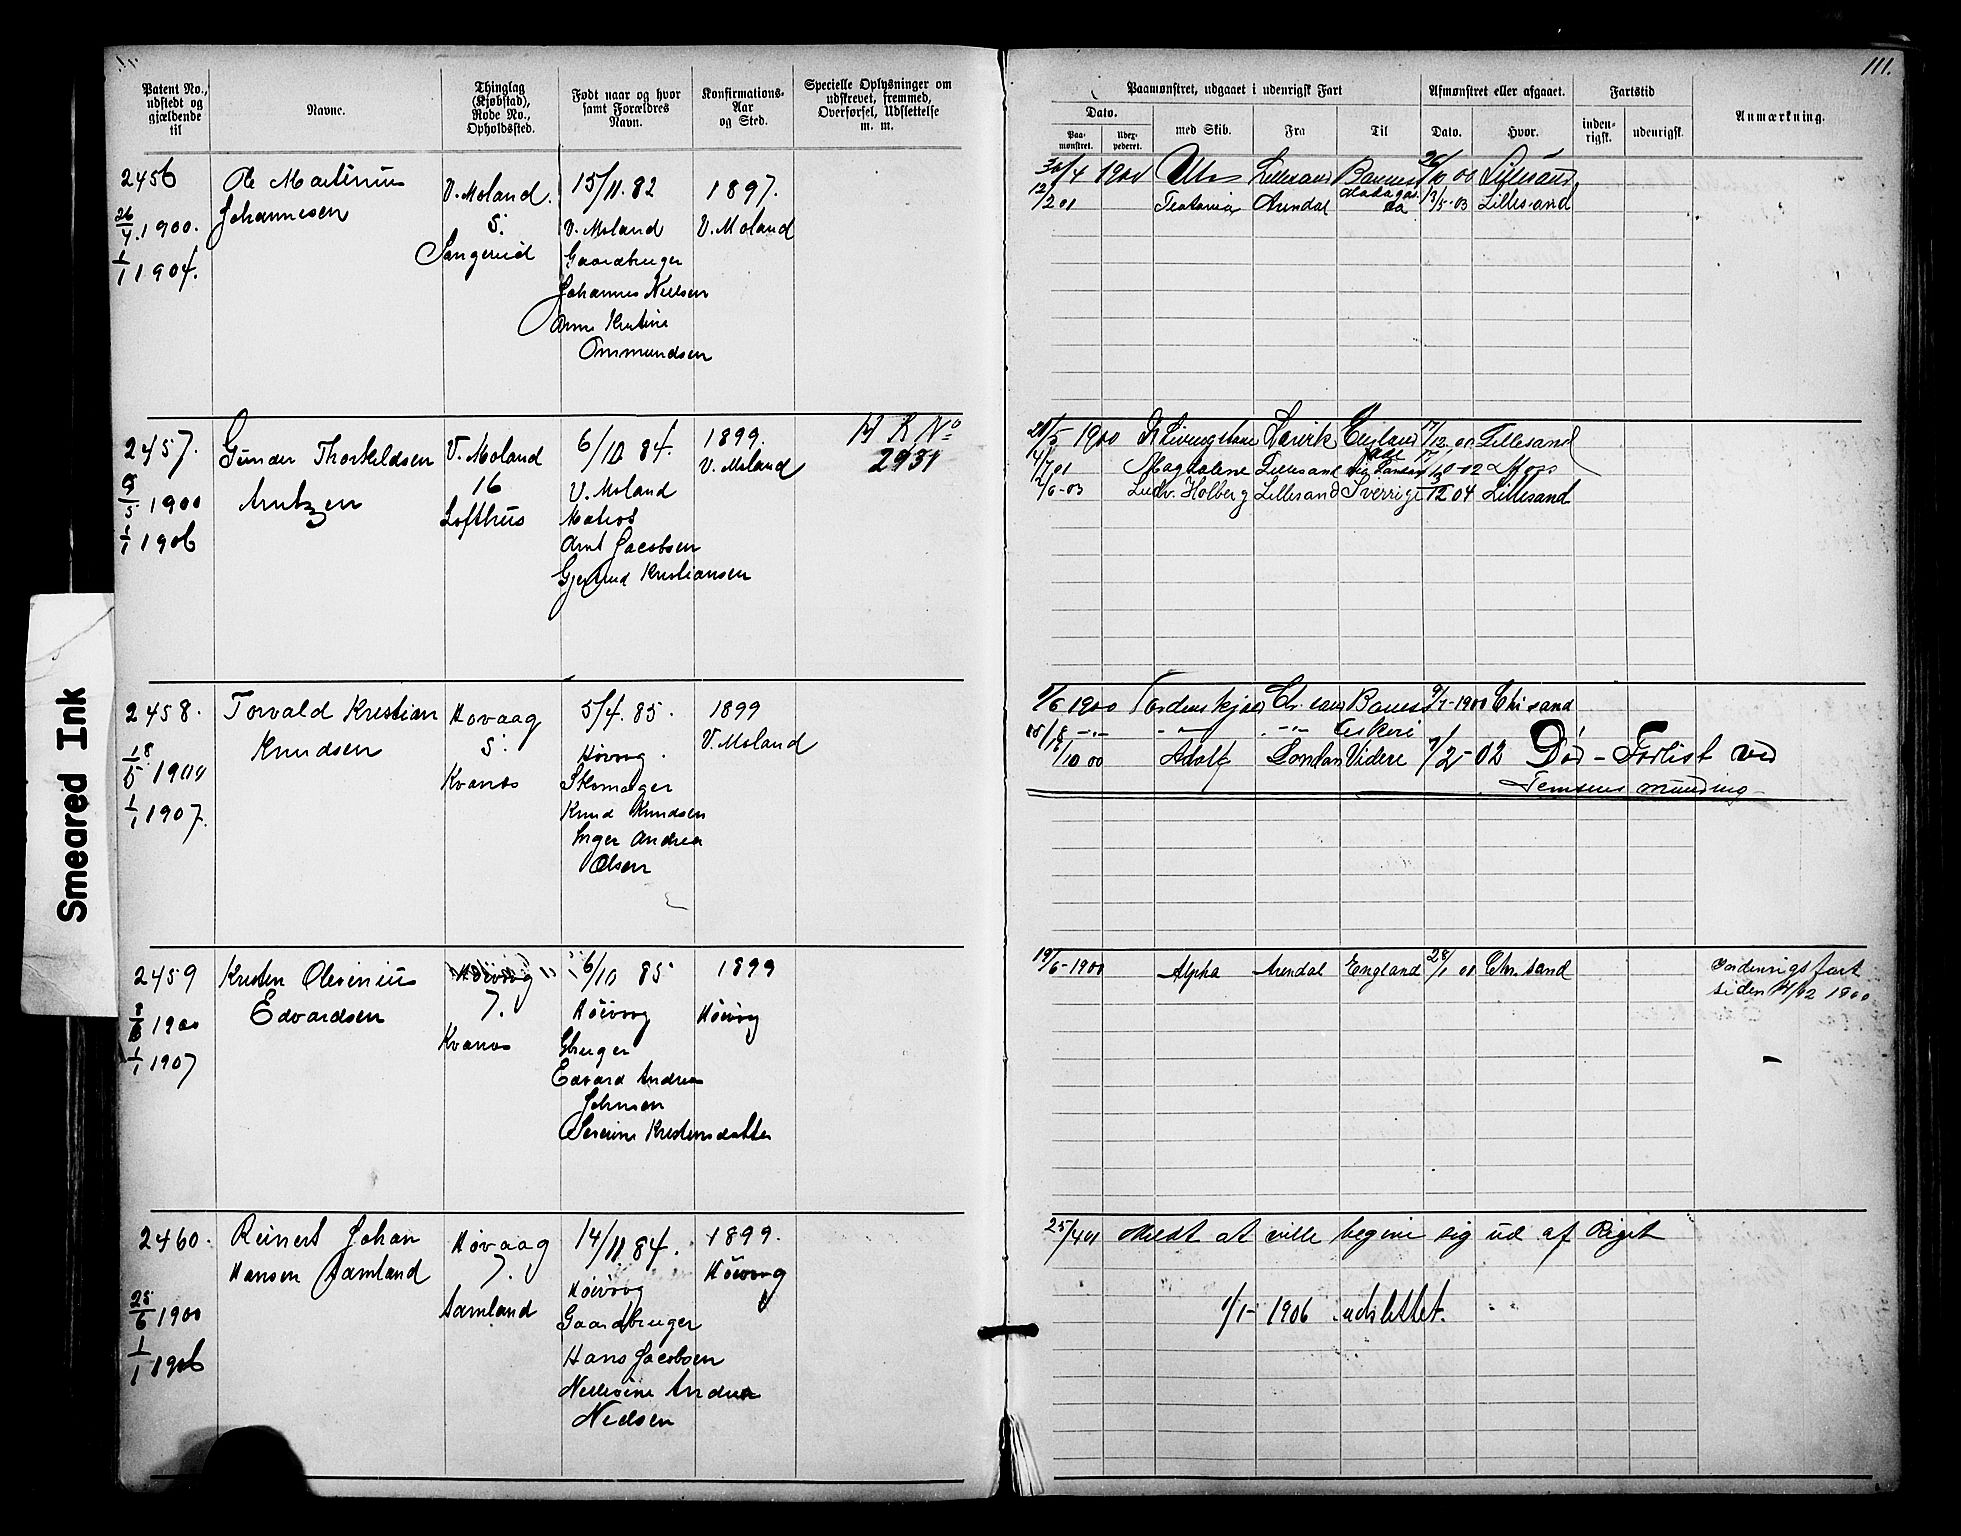 111.
Patent No., udstedt og gjældende til
Navne.
Thinglag (Kjøbstad), Rode No., Opholdssted.
Født naar og hvor samt Forældres Navn.
Konfirmations-Aar og Sted.
Specielle Oplysninger om udskrevet, fremmed, Overførsel, Udslettelse m. m.
Paamønstret, udgaaet i udenrigsk Fart
Afmønstret eller afgaaet.
Fartstid
Anmærkning.
Dato.
Paa-mønstret.
Udex-pederet.
med Skib.
Fra
Til
Dato.
Hvor.
inden-rigsk.
udenrigsk.
2456
26/4 1900.
1/1 1904.
Ole Martinius
Johannesen
V. Moland.
5.
15/11. 82
V. Moland
Gaardbruger
Johannes Nielsen
Anne Kristine
Ommundsen
1897.
V. Moland
30/4 1900 Lillesand 26/10 00 Lillesand
12/2 01 Arendal Lillesand
2457.
9/5 1900
1/1 1906
Gunder Thorkildsen
Arntzen
V. Moland
16
Lofthus
6/10 84.
V. Moland
Matros
Arnt Jacobsen
Gjertrud Kristiansen
1899.
V. Moland
H R No
2931
28/5 1900 Livingstone Larvik England 17/12 00 Lillesand
4/7 01 Magdalene Lillesand Moss
2/6-03 Ludv. Holberg Lillesand Sverrige 3/12 04 Lillesand
2458.
18/5 1900
1/1 1907.
Torvald Kristian
Knudsen
Høvaag
5.
Kvanes
5/4. 85.
Høivaag.
Skomager
Knud Knudsen
Inger Andrea
Olsen
1899
V. Moland
1/6 1900 Tordenskjold 9/7-1900 Chrsand
18/8 -"- -"- -"-
17/10 00 Adolf London Videre 7/2-02 Død - Forlist ved
Temsens munding
2459
1900
1/1 1907
Kristen Olevinius
Edvardsen
Høivaag
7.
Kvanes
6/10 85
Høivaag
Gbruger
Edvard Andreas
Johnsen
Serine Kristensdatter
1899
Høivaag
19/6-1900 Alpha Arendal England Chr.sand
indenrigsfart
siden 1900
2460.
25/6 1900
1/1 1906
Reinert Johan
Hansen Aamland
Høvaag
7.
Aamland
14/11 84.
Høivaag
Gaardbruger
Hans Jacobsen
Nellevine Andrea
Nielsen
1899.
Høivaag
25/4 01 Meldt at ville begive sig ud af Riget
1/1- 1906 udslettet.
Smeared Ink